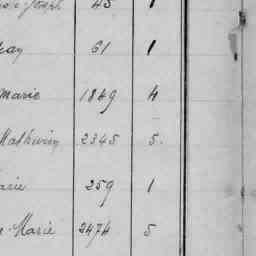 Joseph 45 1
61 1
Marie 1849 4
Mathurin 2345 5.
Marie 259 1
Marie 2474 5